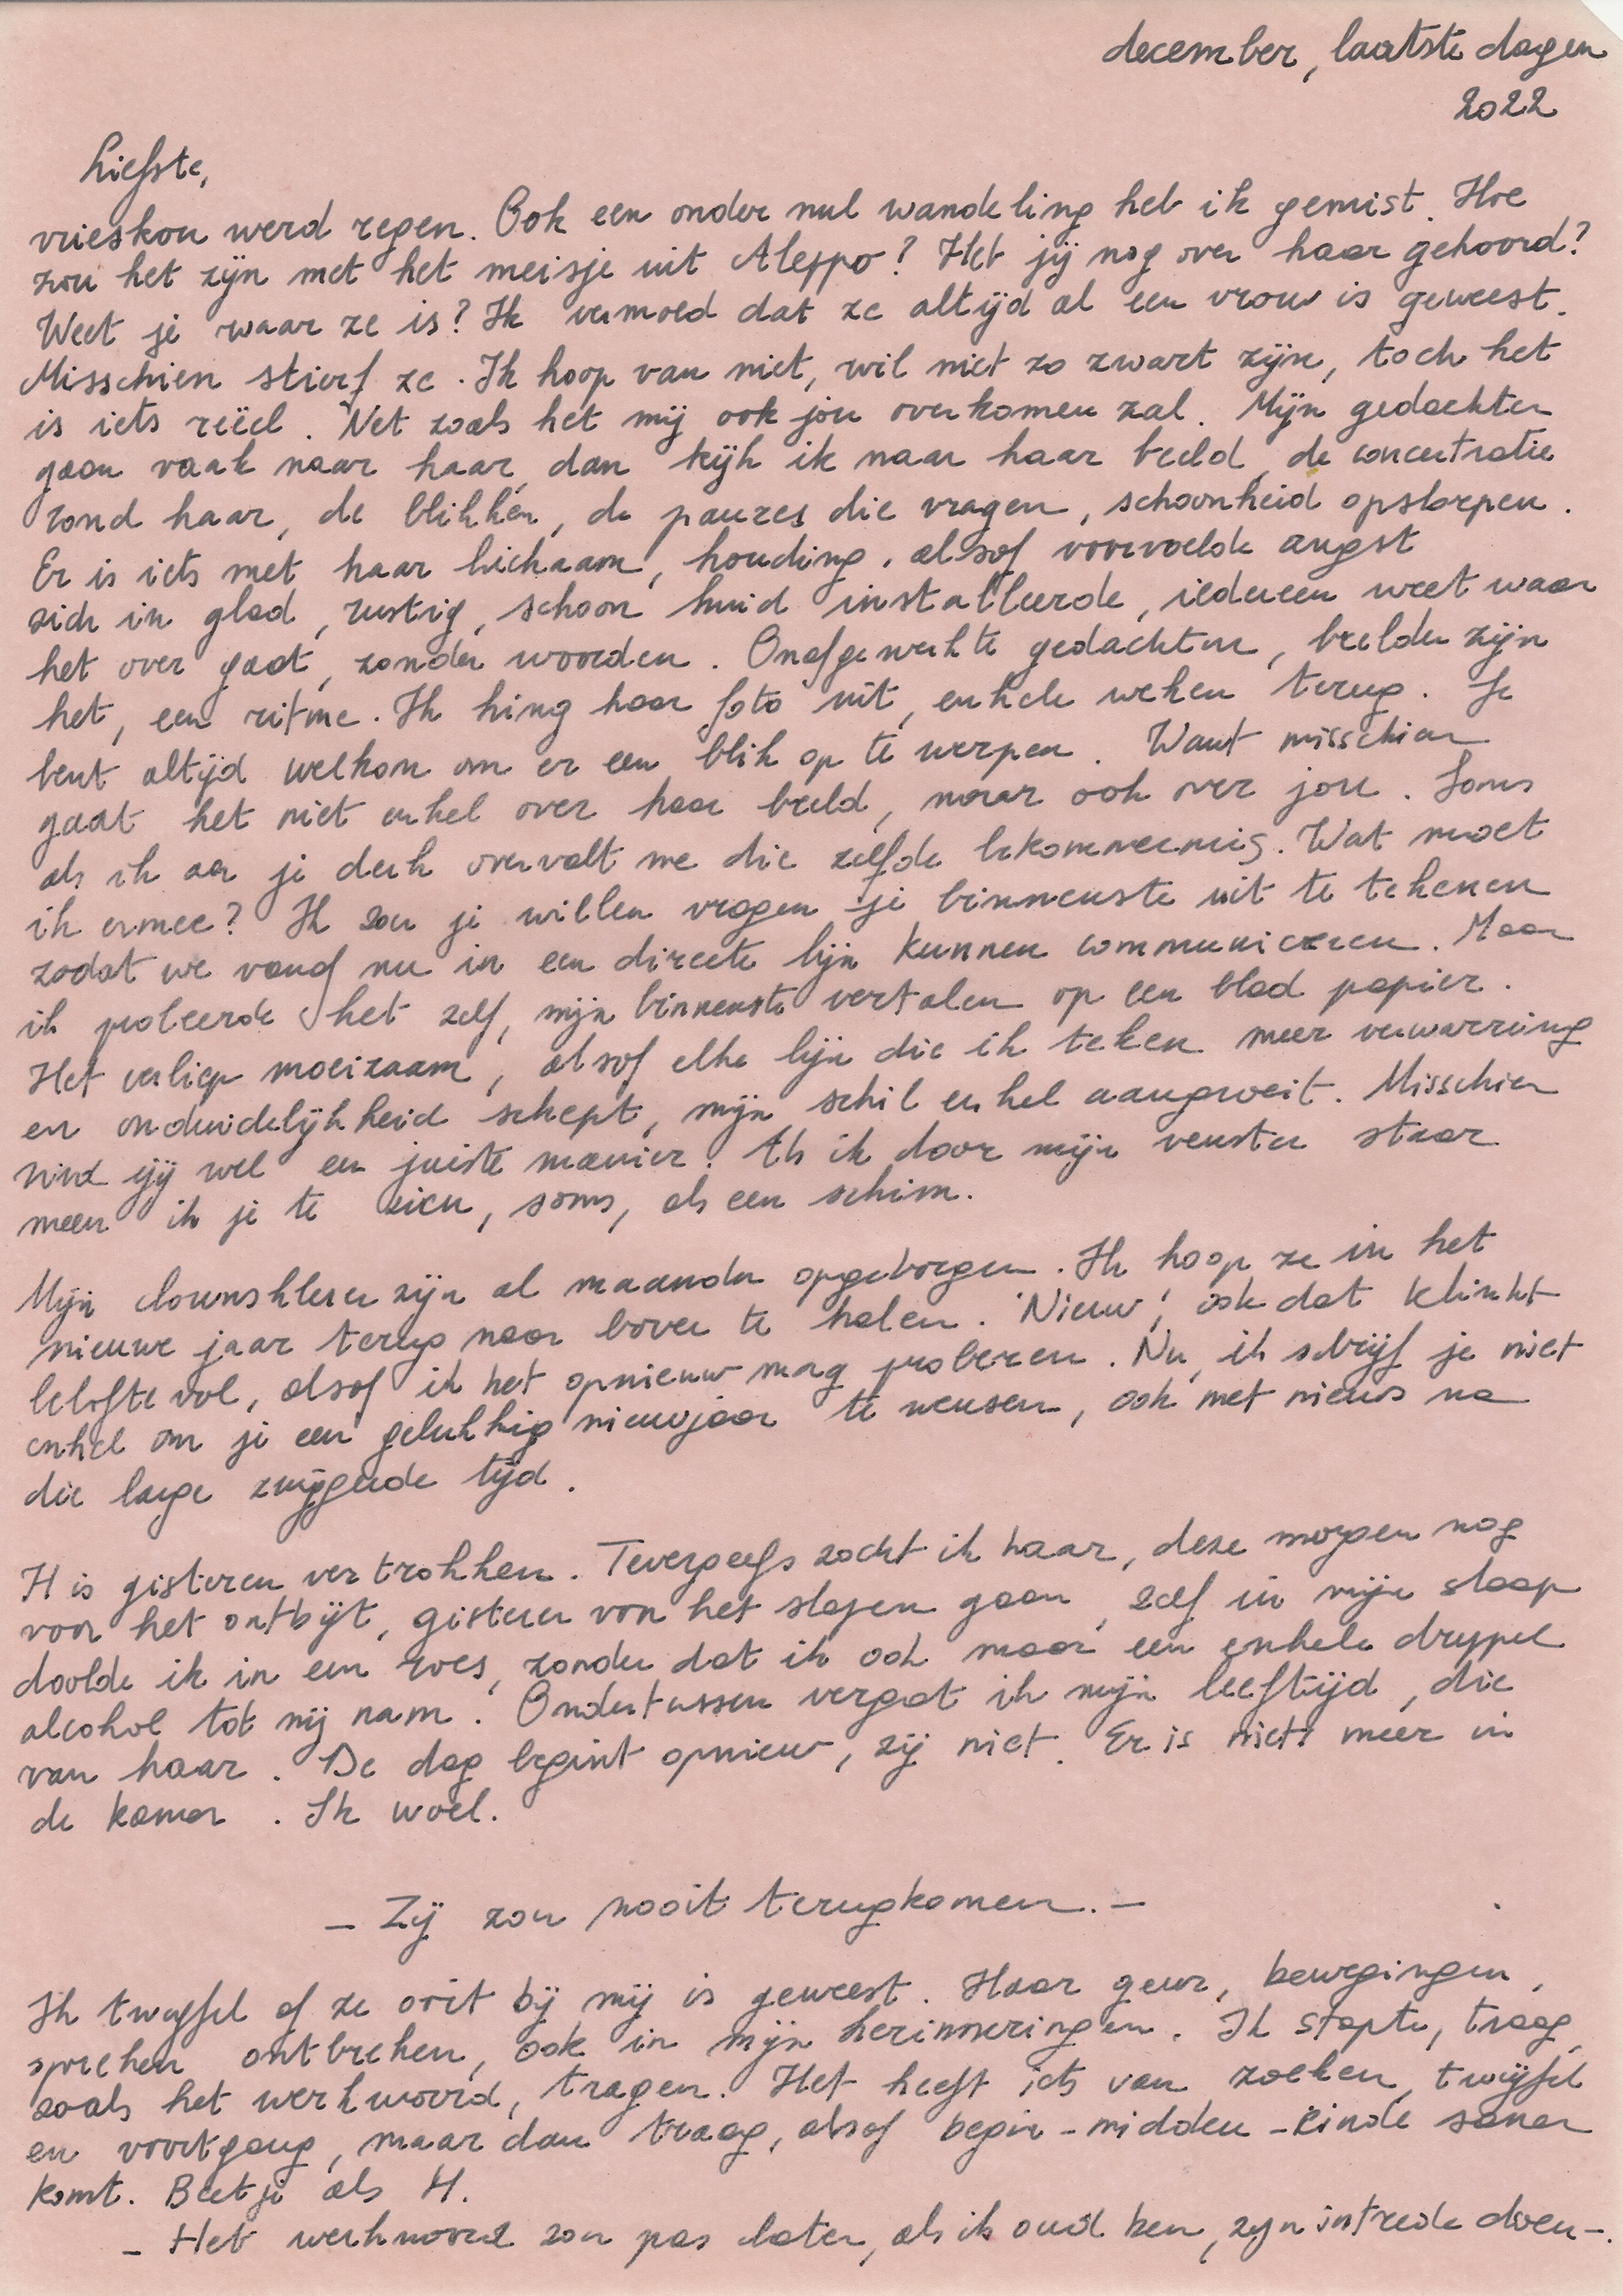 december, laatste dagen
2022
Liefste,
vrieskou werd regen. Ook een onder nul wandeling heb ik gemist. Hoe
zou het zijn met het meisje uit Aleppo? Heb jij nog over haar gehoord?
Weet je waar ze is? Ik vermoed dat ze altijd al een vrouw is geweest.
Misschien stierf ze. Ik hoop van niet, wil niet zo zwart zijn, toch het
is iets reëel. Net zoals het mij ook jou overkomen zal. Mijn gedachten
gaan vaak naar haar, dan kijk ik naar haar beeld, de concentratie
rond haar, de blikken, de pauzes die vragen, schoonheid opslorpen.
Er is iets met haar lichaam, houding, alsof voorvoelde angst
zich in glad, rustig, schoon huid installeerde, iedereen weet waar
het over gaat, zonder woorden. Onafgewerkte gedachten, beelden zijn
het, een ritme. Ik hing haar foto uit, enkele weken terug. Je
bent altijd welkom om er een blik op te werpen. Want misschien
gaat het niet enkel over haar beeld, maar ook over jou. Soms
als ik aan je denk overvalt me die zelfde bekommernis. Wat moet
ik ermee? Ik zou je willen vragen je binnenste uit te tekenen
zodat we vanaf nu in een directe lijn kunnen communiceren. Maar
ik probeerde het zelf, mijn binnenste vertalen op een blad papier.
Het verliep moeizaam, alsof elke lijn die ik teken meer verwarring
en onduidelijkheid schept, mijn schil enkel aangroeit. Misschien
vind jij wel een juiste manier. Als ik door mijn venster staar
meen ik je te zien, soms, als een schim.
Mijn clownskleren zijn al maanden opgeborgen. Ik hoop ze in het
nieuwe jaar terug naar boven te halen. 'Nieuw', ook dat klinkt
belofte vol, alsof ik het opnieuw mag proberen. Nu, ik schrijf je niet
enkel om je een gelukkig nieuwjaar te wensen, ook met nieuws na
die lange zwijgende tijd.
H is gisteren vertrokken. Tevergeefs zocht ik haar, deze morgen nog
voor het ontbijt, gisteren voor het slapen gaan, zelf in mijn slaap
doolde ik in een roes, zonder dat ik ook maar een enkele druppel
alcohol tot mij nam. Ondertussen vergat ik mijn leeftijd, die
van haar. De dag begint opnieuw, zij niet. Er is niets meer in
de kamer. Ik woel.
- Zij zou nooit terugkomen. -
Ik twijfel of ze ooit bij mij is geweest. Haar geur, bewegingen,
spreken ontbreken, ook in mijn herinneringen. Ik stapte, traag,
zoals het werkwoord, tragen. Het heeft iets van zoeken, twijfel
en voortgang, maar dan traag, alsof begin - midden - einde samen
komt. Beetje als H.
- Het werkwoord zou pas later, als ik oud ben, zijn intrede doen -.